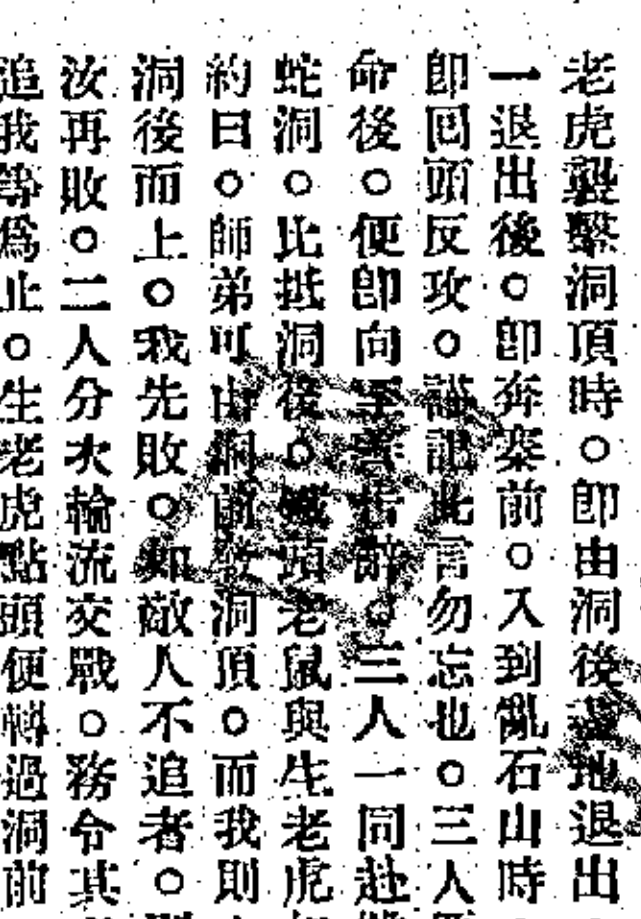 老虎襲擊洞頂時。即由洞後盡地退出
一退出後。即奔寨前。入到亂石山時
即囘頭反攻。謹記此言勿忘也。三人
命後。便即向至善告辭。三人一同赴
蛇洞。比抵洞後。頭老鼠與生老虎
約曰。師弟可由洞前登洞頂。而我則
洞後而上。我先敗。如敵人不追者。
汝再敗。二人分次輪流交戰。務令其
追我等爲止。生老虎點頭便轉過洞前